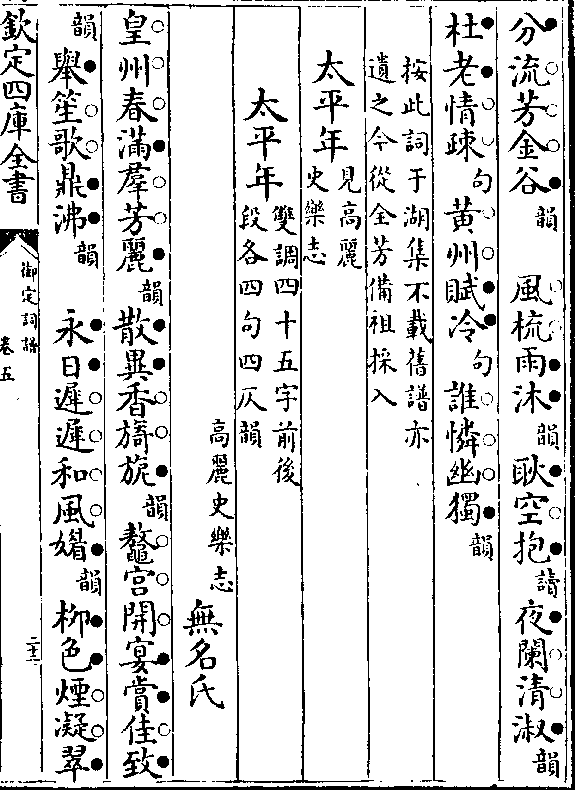 分流芳金谷韻　風梳雨沐韻耿空抱讀夜闌清淑韻
杜老情疎句黄州賦冷句誰憐幽獨韻
按此詞于湖集不載舊譜亦
遺之今從全芳備祖採入
太平年見高麗
史樂志
太平年雙調四十五字前後
段各四句四仄韻
高麗史樂志無名氏
皇州春滿羣芳麗韻散異香旖旎韻鼇宮開宴賞佳致
韻舉笙歌鼎沸韻　永日遲遲和風媚韻柳色煙凝翠
欽定四庫全書
御定詞譜
卷五
二十三